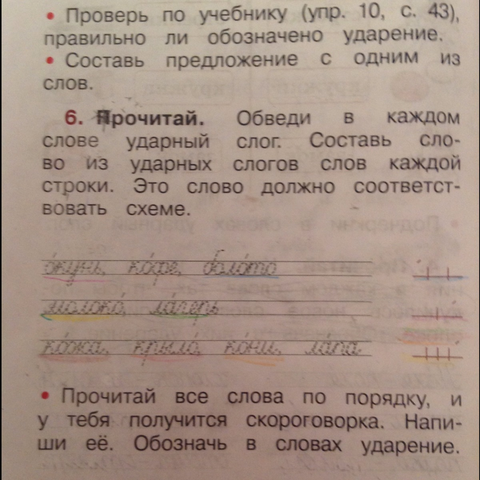 • Проверь по учебнику (упр. 10, с. 43),
правильно ли обозначено ударение.
• Составь предложение с одним из
слов.
6. Прочитай. Обведи в каждом
слове ударный слог. Составь сло-
во из ударных слогов слов каждой
строки. Это слово должно соответст-
вовать схеме.
о́кунь, ко́фе, боло́то
молоко́, ла́герь
ко́жа, крыло́, ко́ни, ла́па
• Прочитай все слова по порядку, и
у тебя получится скороговорка. Напи-
ши её. Обозначь в словах ударение.